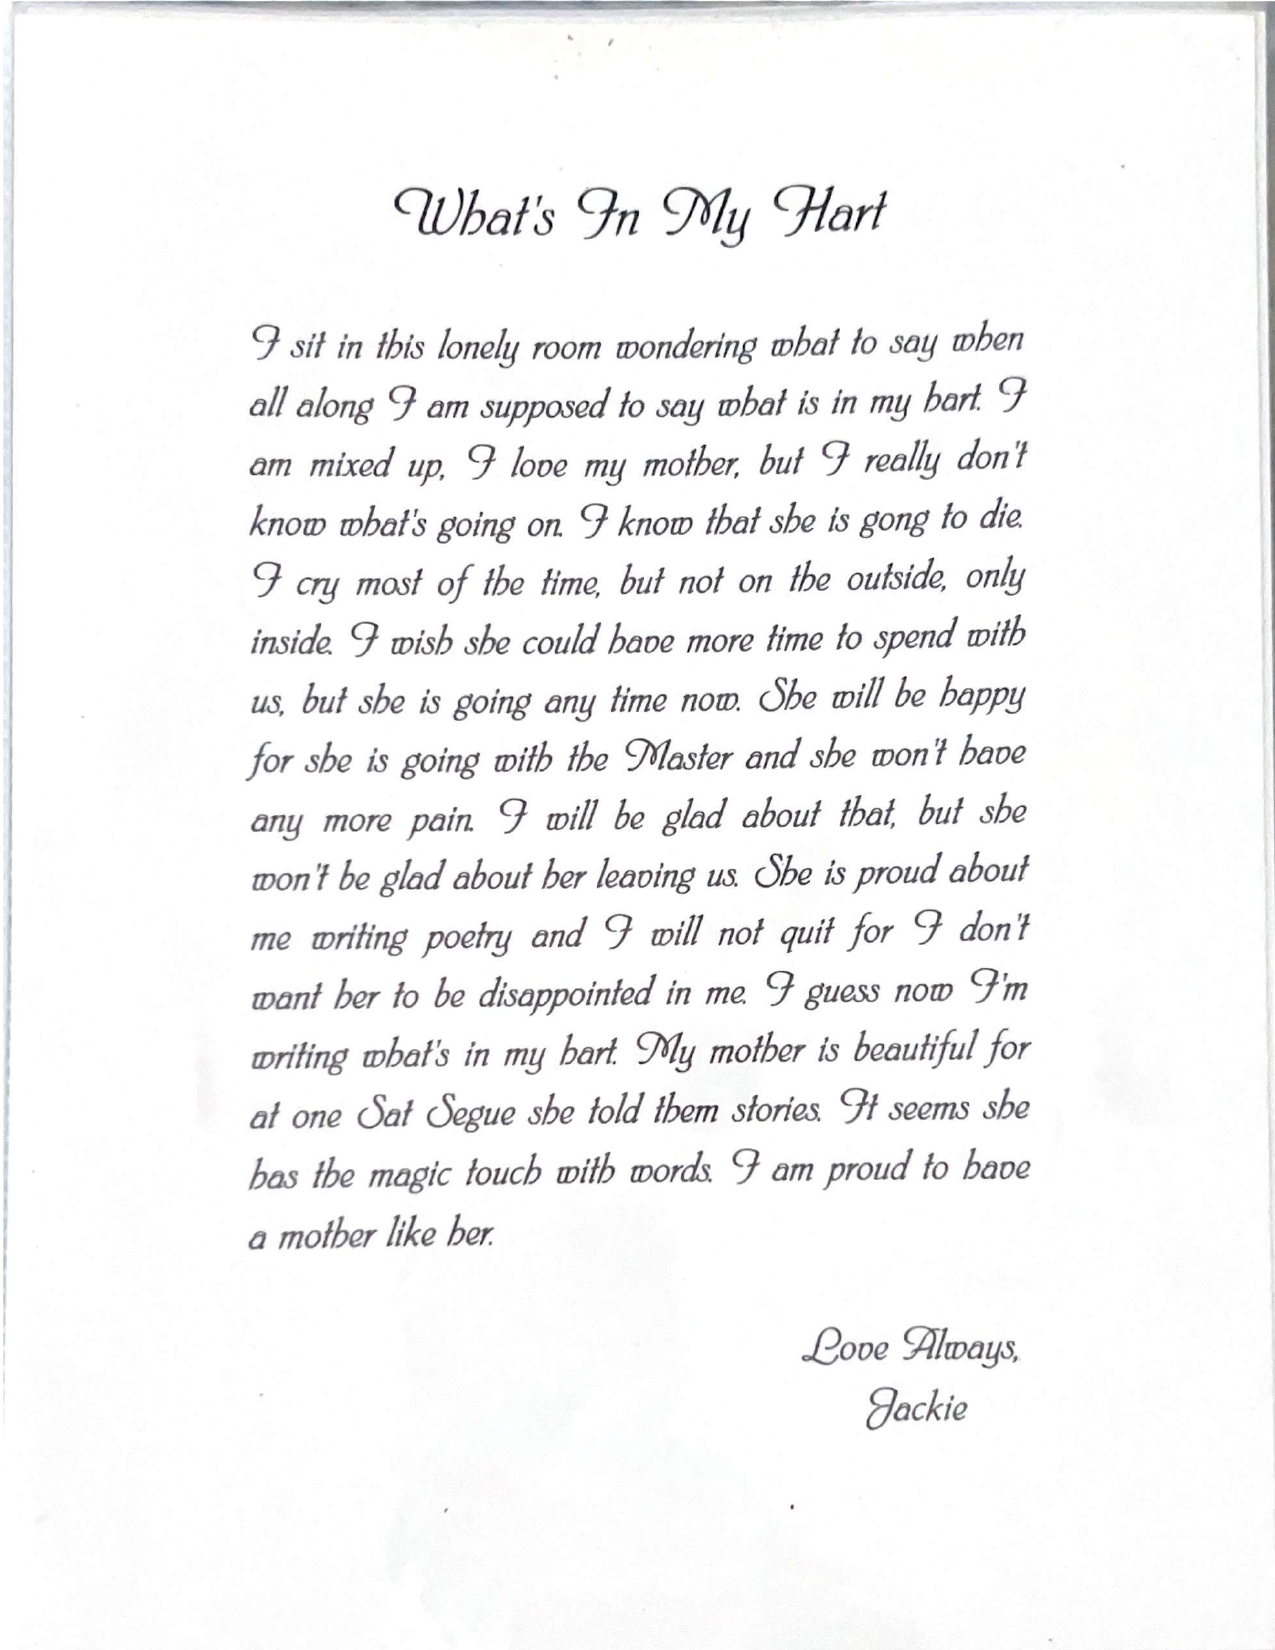 What's In My Hart
I sit in this lonely room wondering what to say when
all along I am supposed to say what is in my hart. I
am mixed up, I love my mother, but I really don't
know what's going on. I know that she is gong to die.
I cry most of the time, but not on the outside, only
inside. I wish she could have more time to spend with
us, but she is going any time now. She will be happy
for she is going with the Master and she won't have
any more pain. I will be glad about that, but she
won't be glad about her leaving us. She is proud about
me writing poetry and I will not quit for I don't
want her to be disappointed in me. I guess now I'm
writing what's in my hart. My mother is beautiful for
at one Sat Segue she told them stories. It seems she
has the magic touch with words. I am proud to have
a mother like her.
Love Always,
Jackie